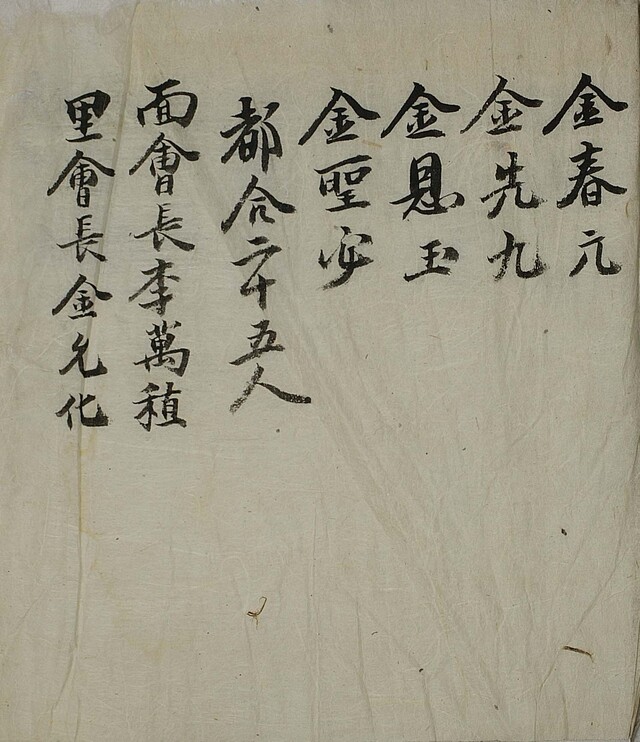 金春元
金先九
金恩玉
金聖安
都合二十五人
面會長李萬稙
里會長金允化